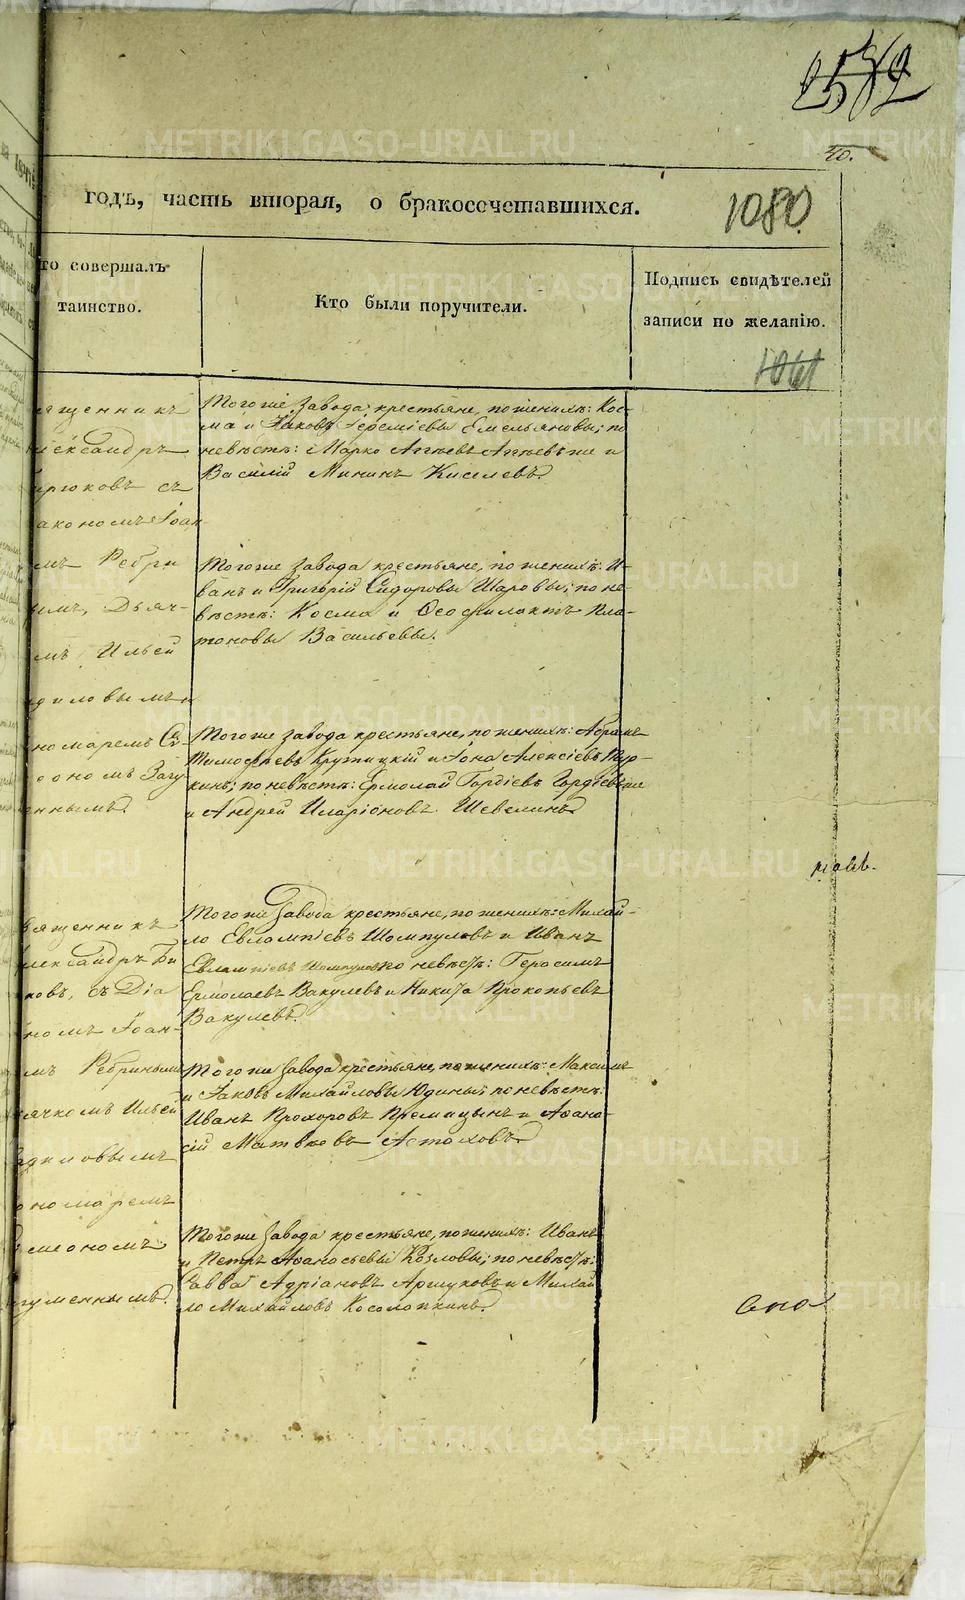 40.
годъ, часть вторая, о бракосочетавшихся.
1080
то совершалъ
таинство.
Кто были поручители.
Подпись свидѣтелей
записи по желанію.
1061
ященникъ
лександръ
рюковъ съ
акономъ Іоан-
мъ Ребри
ымъ, Дьяч-
мъ Ильей
диловымъ и
номаремъ
оономъ Загу
еннымъ.
Тогоже завода крестьяне, по женихѣ: Кос-
ма и Іаковъ Іереміевы Емельяновы; по
невѣстѣ: Марко Агѣевъ Агѣевъ же и
Василій Мининъ Киселевъ.
Тогоже завода крестьяне, по женихѣ: И-
ванъ и Григорій Сидоровы Шаровы; по не-
вѣстѣ: Косма и Ѳеофилактъ Пла-
тоновы Васильевы.
Тогоже завода крестьяне, по женихѣ: Абрамъ
Тимофѣевъ Кружицкій и Іона Алексѣевъ
кинъ; по невѣстѣ: Ермолай Гордѣевъ Гордѣевъ же
и Андрей Иларіоновъ Шевелинъ.
ященникъ
лександръ Би
ковъ, съ Діа
номъ Іоан-
мъ Ребринымъ
ячкомъ Ильей
адиловымъ
ономаремъ
меономъ
гуменнымъ.
Тогоже завода крестьяне, по женихѣ: Михай-
ло Евлампіевъ Шомпуловъ и Иванъ
Евлампіевъ Шомпуловъ по невѣстѣ: Герасимъ
Ермолаевъ Вакулевъ и Никита Прокопьевъ
Вакулевъ.
Тогоже завода крестьяне, по женихѣ: Максимъ
и Іаковъ Михайловы Юдины; по невѣстѣ:
Иванъ Прохоровъ Премицынъ и Аѳана-
сій Матвѣевъ Астаховъ.
Тогоже завода крестьяне, по женихѣ: Иванъ
и Петръ Аѳанасьевы Козловы; по невѣстѣ:
Савва Адріановъ Аршуковъ и Михай
ло Михайловъ Косолапкинъ.
METRIKI.GASO-URAL.RU